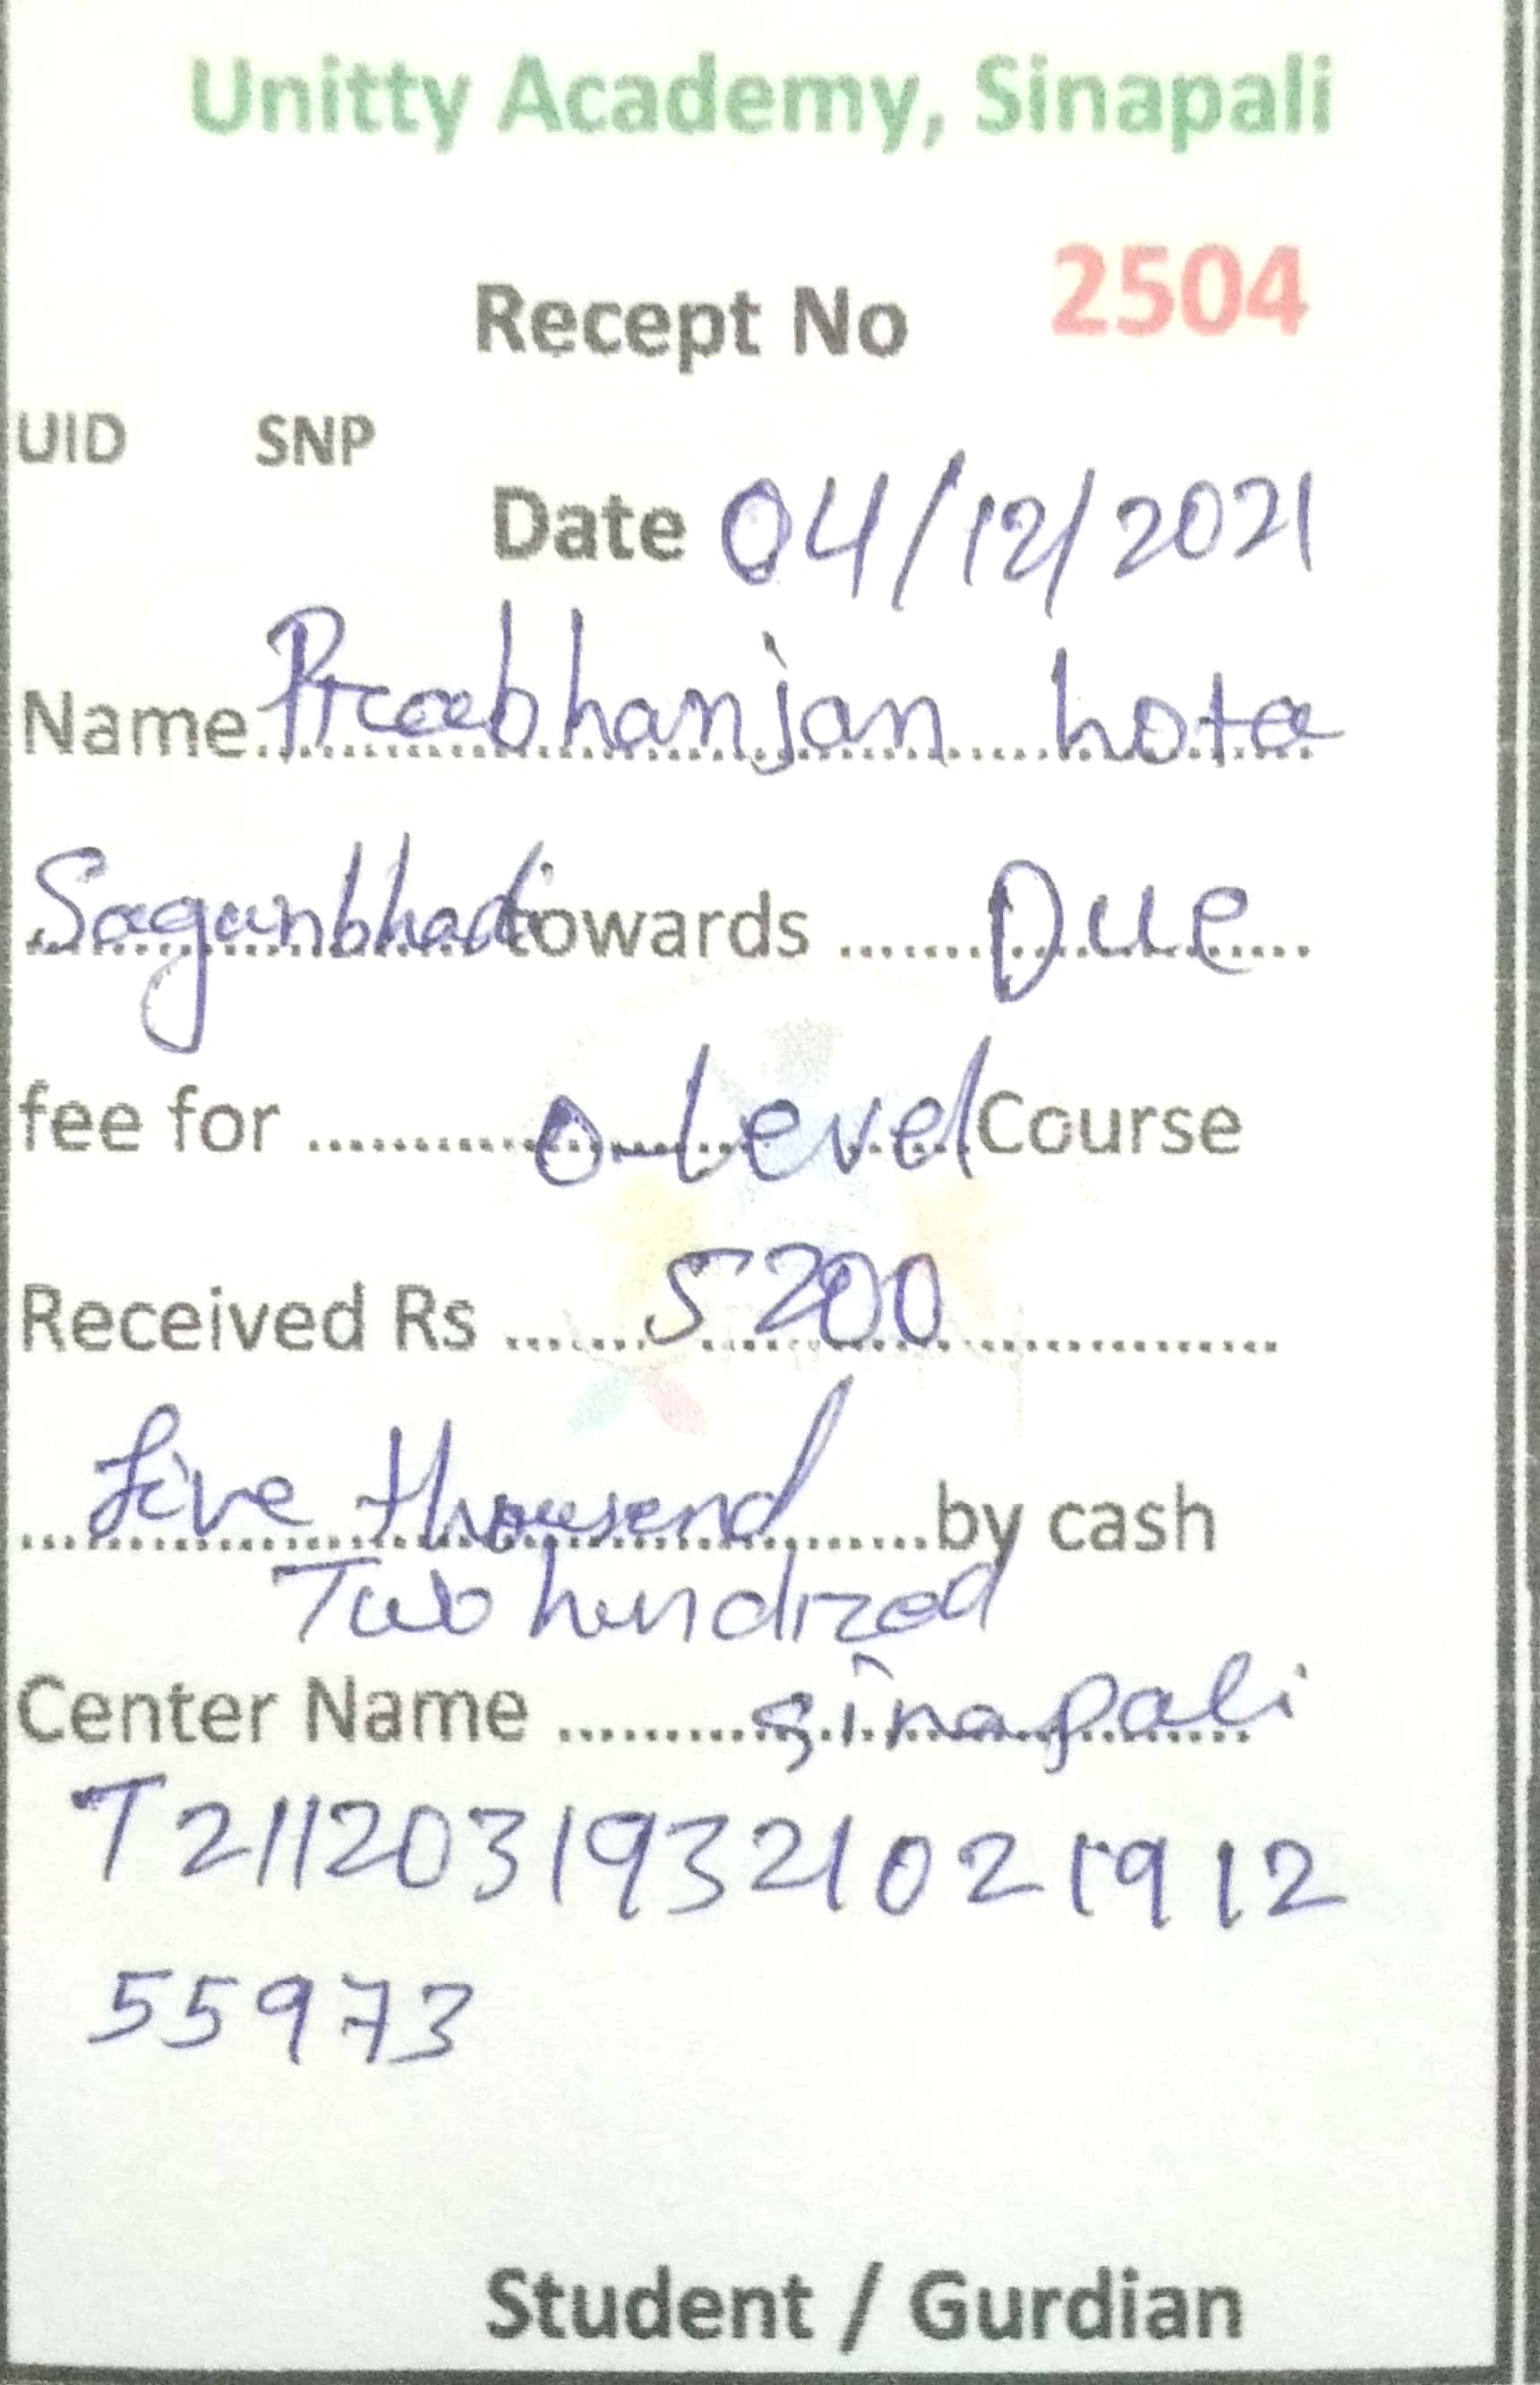 Unitty Academy, Sinapali
Recept No 2504
UID SNP
Date 04/12/2021
Name Prabhanjan hota
Sagunbhadi towards Due
fee for O-Level Course
Received Rs 5200
five thousend by cash
Two hundred
Center Name sinapali
T21120319321021912
55973
Student / Gurdian